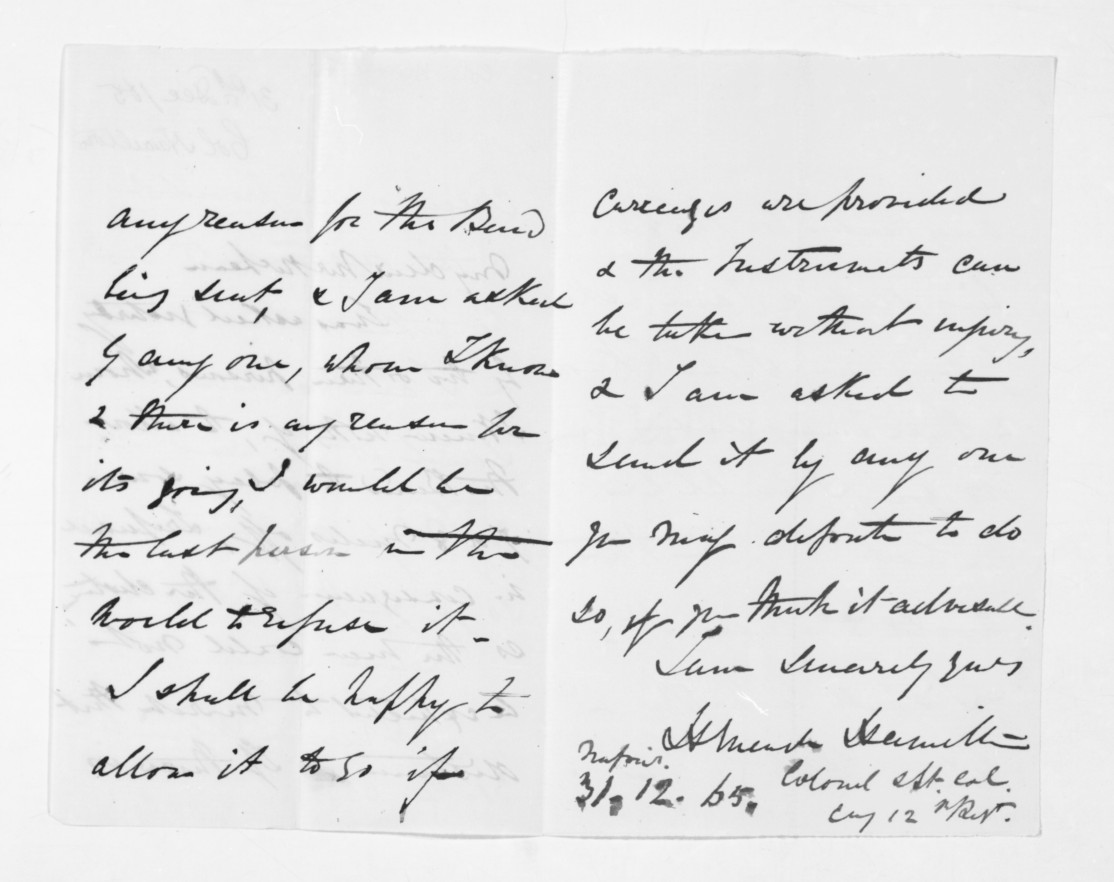 any reason for the Band
being sent, & I am asked
by any one, whom I know
& there is any reason for
its going, I would be
the last person in the
world to refuse it -
I shall be happy to
allow it to go if
Carriages are provided
& the Instruments can
be taken without injury,
& I am asked to
send it by any one
you may depute to do
so, if you think it advisable.
I am Sincerely yours
Hamilton
Napier.
31. 12. 65.
Colonel & Lt. Col.
Cmg 12th Regt.